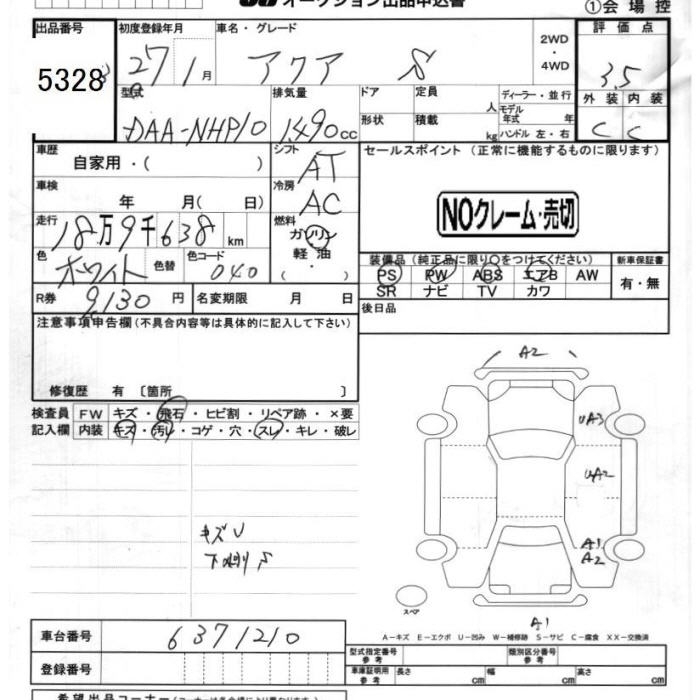 オークション出品申込書
①会場控
出品番号
5328
初度登録年月
27年1月
車名・グレード
アクア S
2WD
・
4WD
評価点
3.5
外装 内装
C C
型式
DAA-NHP10
排気量
1490cc
ドア
定員 人
形状
積載 kg
ディーラー・並行
モデル年式 年
ハンドル 左・右
車歴
自家用・( )
シフト
AT
セールスポイント (正常に機能するものに限ります)
NOクレーム・売切
車検
年 月( 日)
冷房
AC
走行
18万9千638km
燃料
ガソリン
軽油
( ・ )
色
ホワイト
色替
色コード
040
装備品(純正品に限り○をつけてください)
新車保証書
PS PW ABS エアB AW
SR ナビ TV カワ
有・無
R券
9,130円
名変期限 月 日
後日品
注意事項申告欄(不具合内容等は具体的に記入して下さい)
修復歴 有 〔箇所 〕
検査員
記入欄
FW キズ・飛石・ヒビ割・リペア跡・×要
内装 キズ・汚れ・コゲ・穴・スレ・キレ・破レ
A2
UA3
UA2
A1
A2
キズU
下廻りS
スペア
A1
A-キズ E-エクボ U-凹み W-補修跡 S-サビ C-腐食 XX-交換済
車台番号
6371210
登録番号
型式指定番号
参考
類別区分番号
参考
車庫証明用
参考
長さ cm
幅 cm
高さ cm
希望出品コーナー